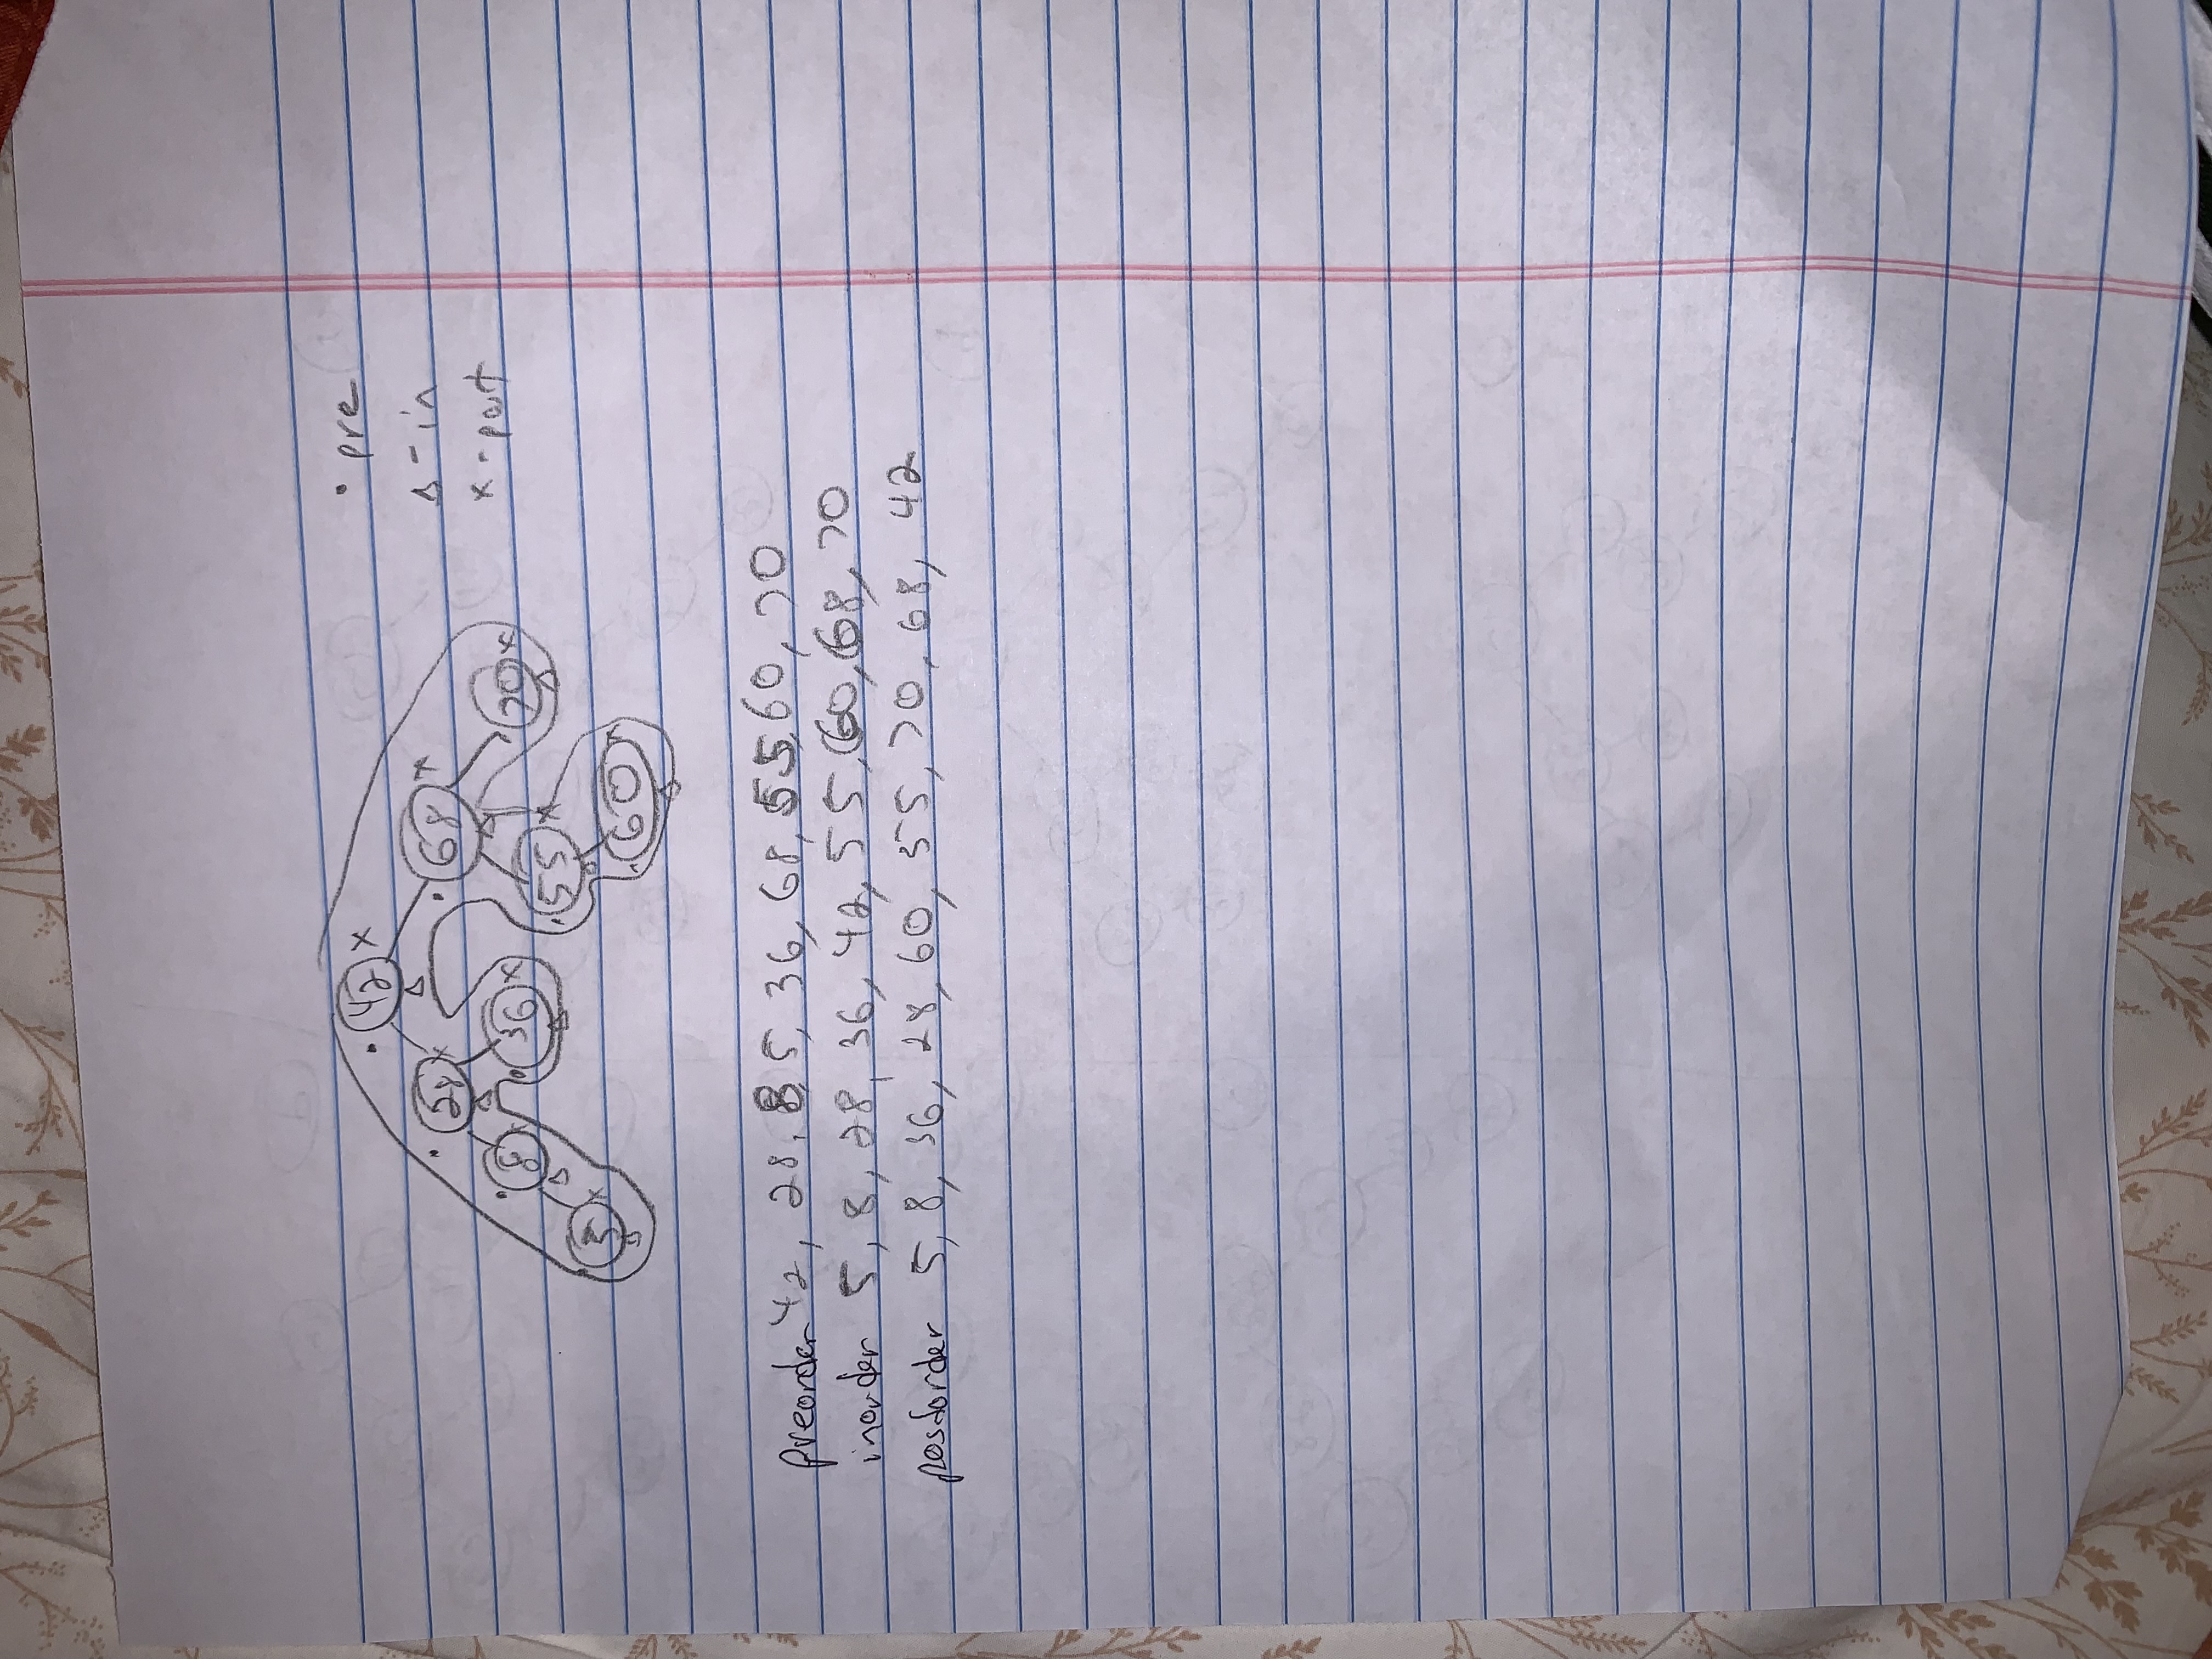 42
28
68
8
36
55
70
5
60
• pre
Δ - in
x - post
preorder 42, 28, 8, 5, 36, 68, 55, 60, 70
inorder 5, 8, 28, 36, 42, 55, 60, 68, 70
postorder 5, 8, 36, 28, 60, 55, 70, 68, 42